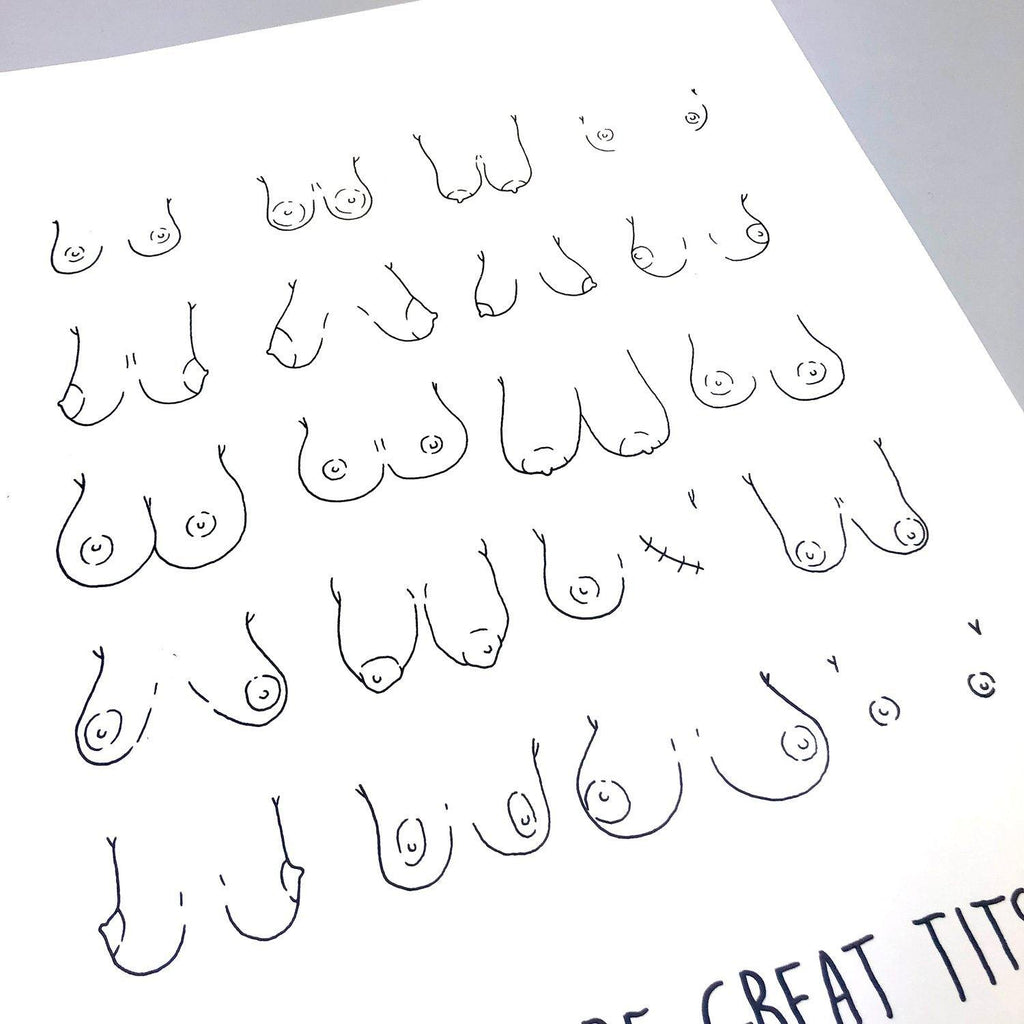 GREAT TITS